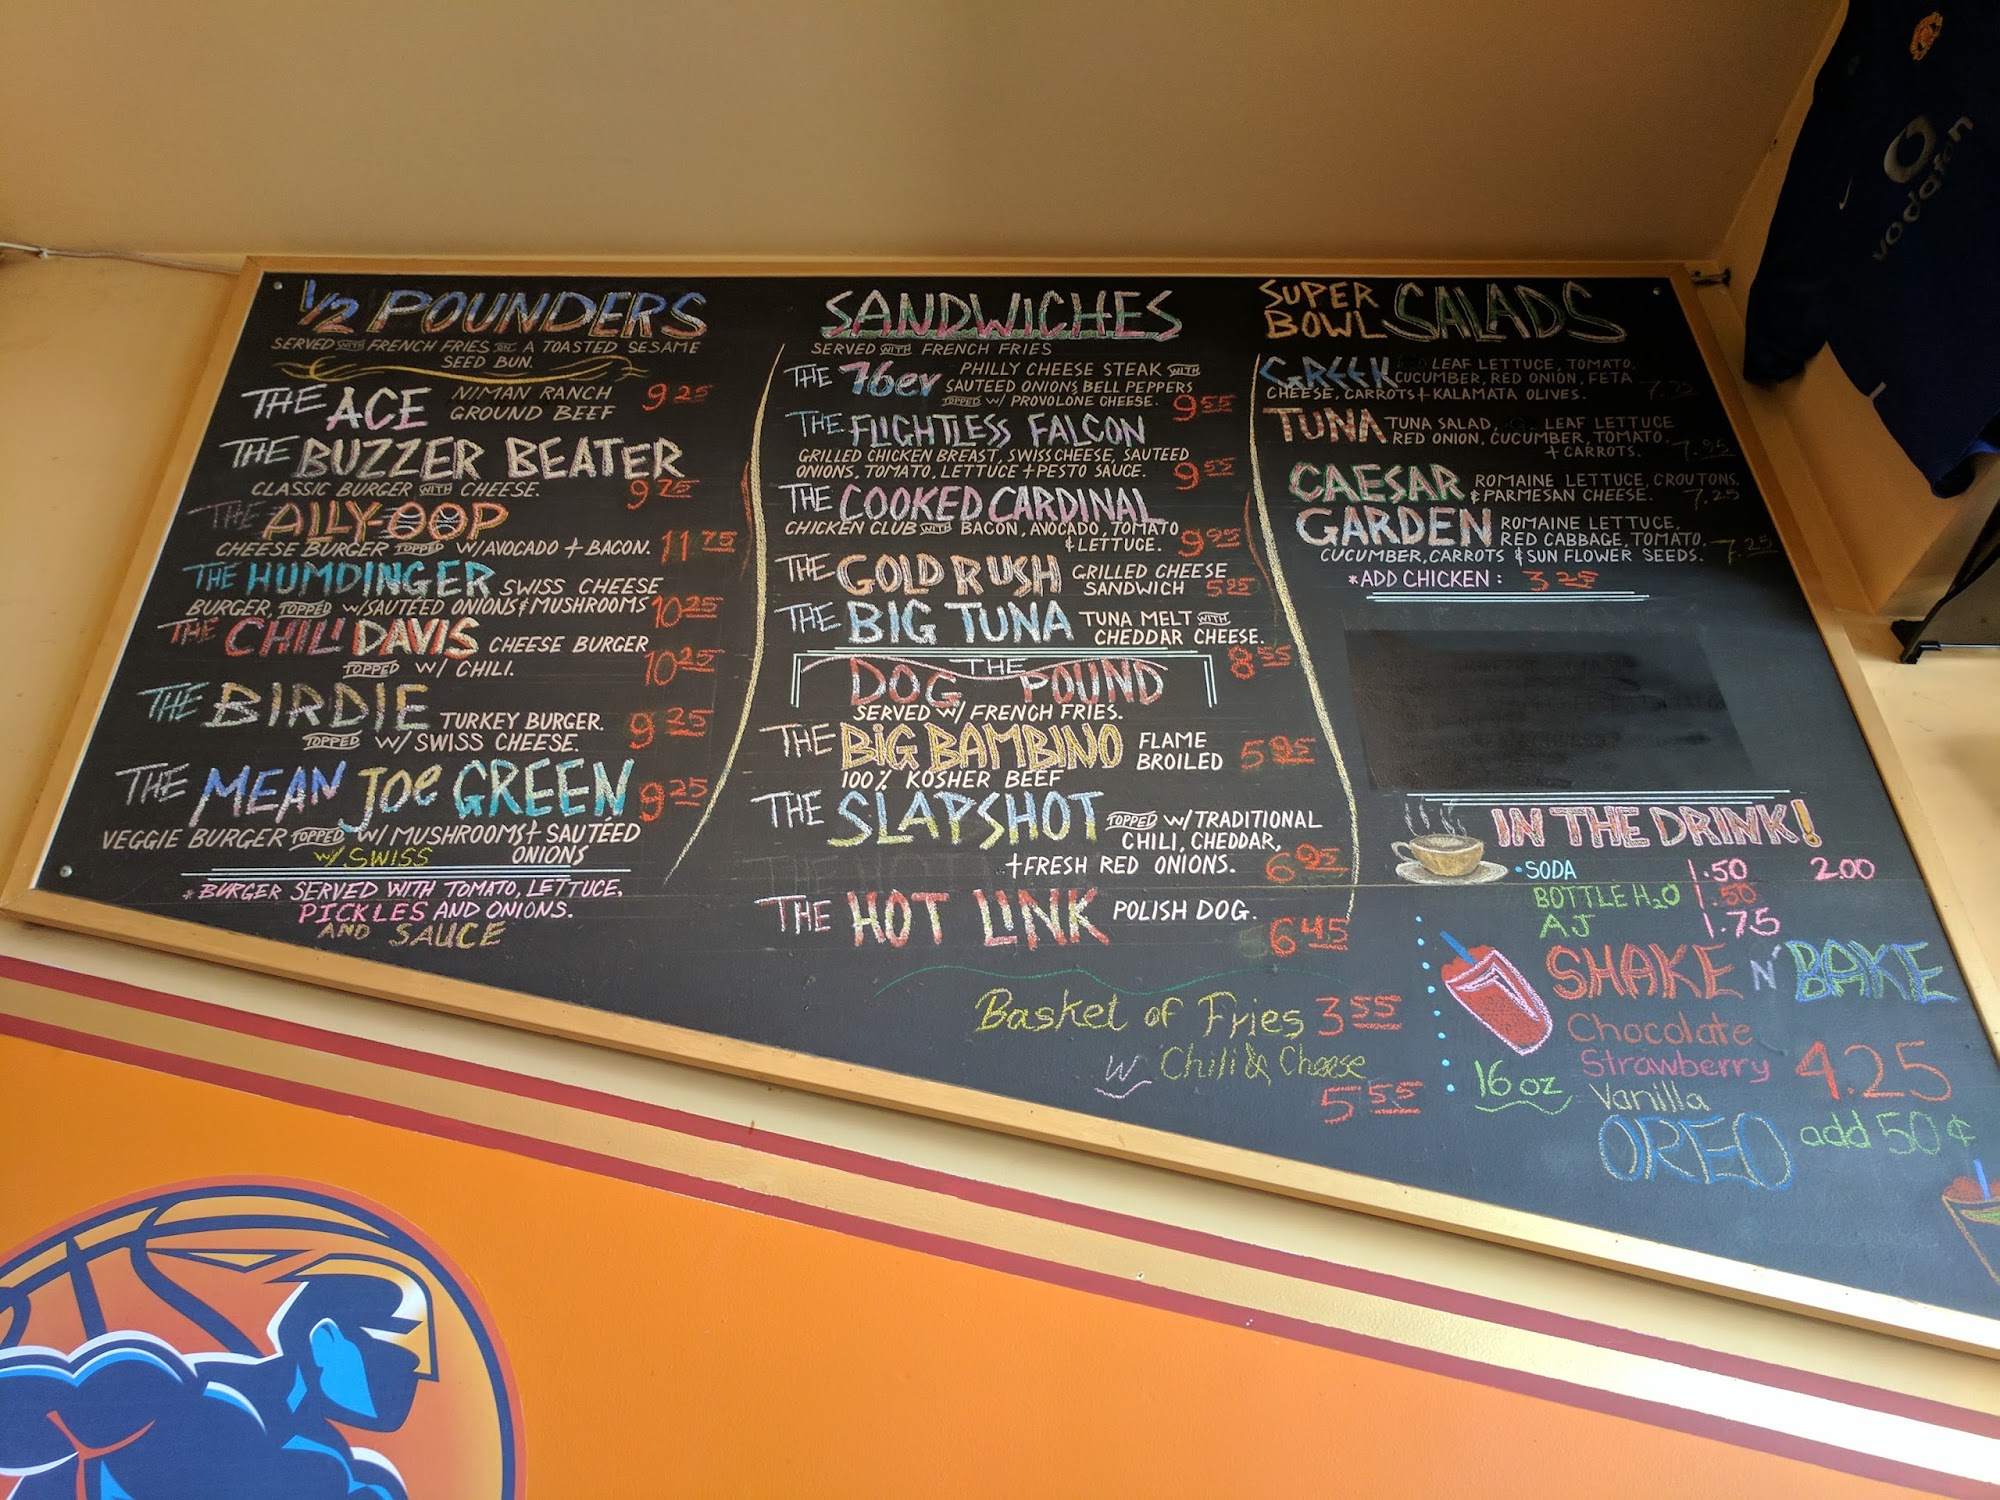 1/2 POUNDERS
SERVED WITH FRENCH FRIES ON A TOASTED SESAME
SEED BUN.
THE ACE NIMAN RANCH
GROUND BEEF 9 25
THE BUZZER BEATER
CLASSIC BURGER WITH CHEESE. 9 75
THE ALLY-OOP
CHEESE BURGER TOPPED W/AVOCADO + BACON. 11 75
THE HUMDINGER SWISS CHEESE
BURGER, TOPPED W/SAUTEED ONIONS & MUSHROOMS 10 25
THE CHILI DAVIS CHEESE BURGER
TOPPED W/ CHILI. 10 25
THE BIRDIE TURKEY BURGER.
TOPPED W/ SWISS CHEESE. 9 25
THE MEAN JOE GREEN 9 25
VEGGIE BURGER TOPPED W/ MUSHROOMS + SAUTÉED
W/ SWISS ONIONS
*BURGER SERVED WITH TOMATO, LETTUCE,
PICKLES AND ONIONS.
AND SAUCE
SANDWICHES
SERVED WITH FRENCH FRIES
THE 76er PHILLY CHEESE STEAK WITH
SAUTEED ONIONS BELL PEPPERS
TOPPED W/ PROVOLONE CHEESE. 9 55
THE FLIGHTLESS FALCON
GRILLED CHICKEN BREAST, SWISS CHEESE, SAUTEED
ONIONS, TOMATO, LETTUCE + PESTO SAUCE. 9 55
THE COOKED CARDINAL
CHICKEN CLUB WITH BACON, AVOCADO, TOMATO
& LETTUCE. 9 95
THE GOLD RUSH GRILLED CHEESE
SANDWICH 5 25
THE BIG TUNA TUNA MELT WITH
CHEDDAR CHEESE. 8 55
THE
DOG POUND
SERVED W/ FRENCH FRIES.
THE BIG BAMBINO FLAME
BROILED 5 95
100% KOSHER BEEF
THE SLAPSHOT TOPPED W/TRADITIONAL
CHILI, CHEDDAR,
+ FRESH RED ONIONS. 6 95
THE HOT LINK POLISH DOG. 6 45
Basket of Fries 3 55
W/ Chili & Cheese
5 55
SUPER
BOWL SALADS
GREEK LEAF LETTUCE, TOMATO,
CUCUMBER, RED ONION, FETA
CHEESE, CARROTS + KALAMATA OLIVES. 7.95
TUNA TUNA SALAD, LEAF LETTUCE
RED ONION, CUCUMBER, TOMATO.
+ CARROTS. 7.95
CAESAR ROMAINE LETTUCE, CROUTONS.
& PARMESAN CHEESE. 7.25
GARDEN ROMAINE LETTUCE,
RED CABBAGE, TOMATO.
CUCUMBER, CARROTS & SUN FLOWER SEEDS. 7.25
*ADD CHICKEN: 3 25
IN THE DRINK!
•SODA 1.50 2.00
BOTTLE H2O 1.50
AJ 1.75
SHAKE N' BAKE
Chocolate
Strawberry 4.25
16 oz Vanilla
OREO add 50¢
vodafon